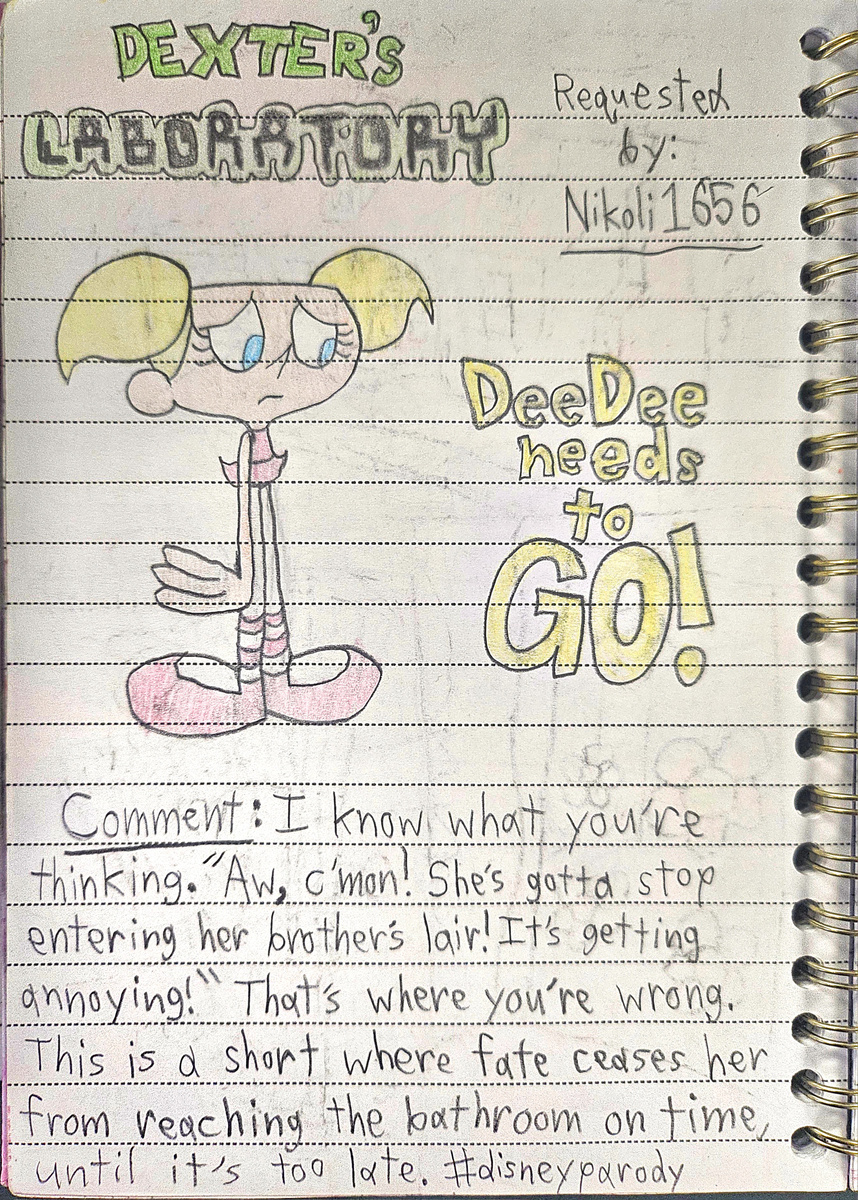 DEXTER'S
LABORATORY
Requested
by:
Nikoli1656
DeeDee
needs
to
GO!
Comment: I know what you're
thinking. "Aw, c'mon! She's gotta stop
entering her brother's lair! It's getting
annoying!" That's where you're wrong.
This is a short where fate ceases her
from reaching the bathroom on time,
until it's too late. #disneyparody